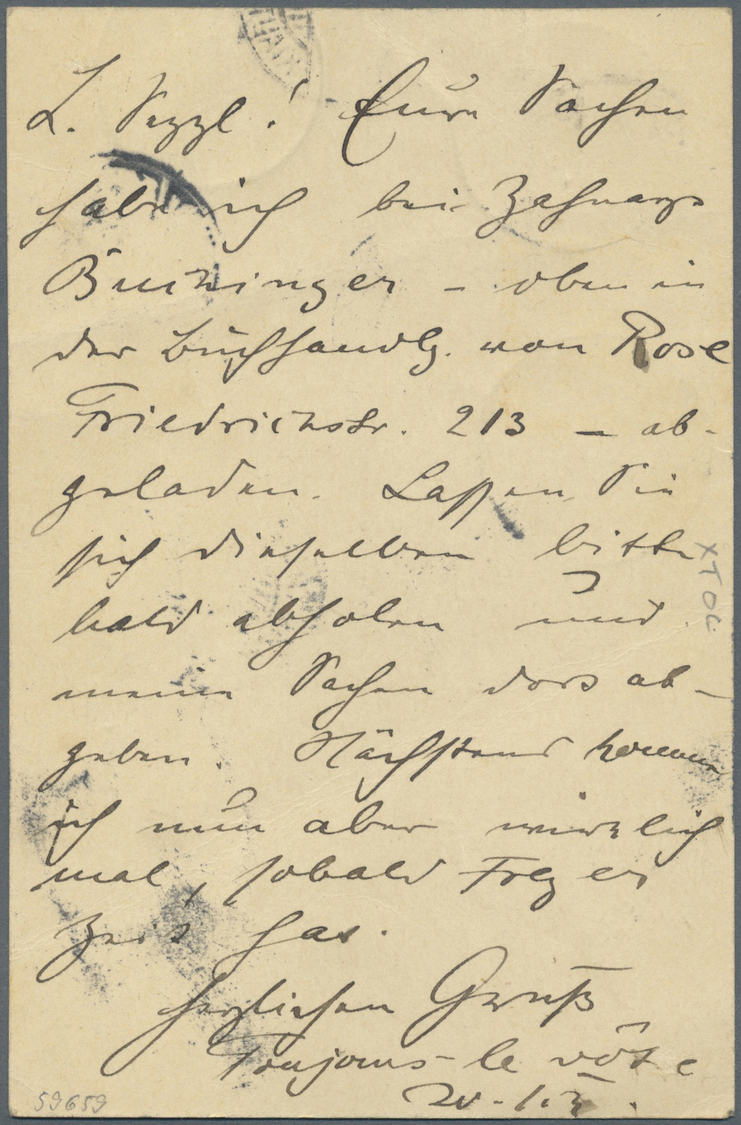 L. Sezzl! Eure Sachen
habe ich bei Zahnarzt
Buchinger – oben in
der Buchhandlg. von Rose
Friedrichstr. 213 – ab-
geladen. Lassen Sie
sich dieselben bitte
bald abholen und
meine Sachen dort ab-
geben. Nächstens komme
ich nun aber wirklich
mal, sobald
Zeit hat.
Herzlichen Gruß
Toujours le vôtre
59659